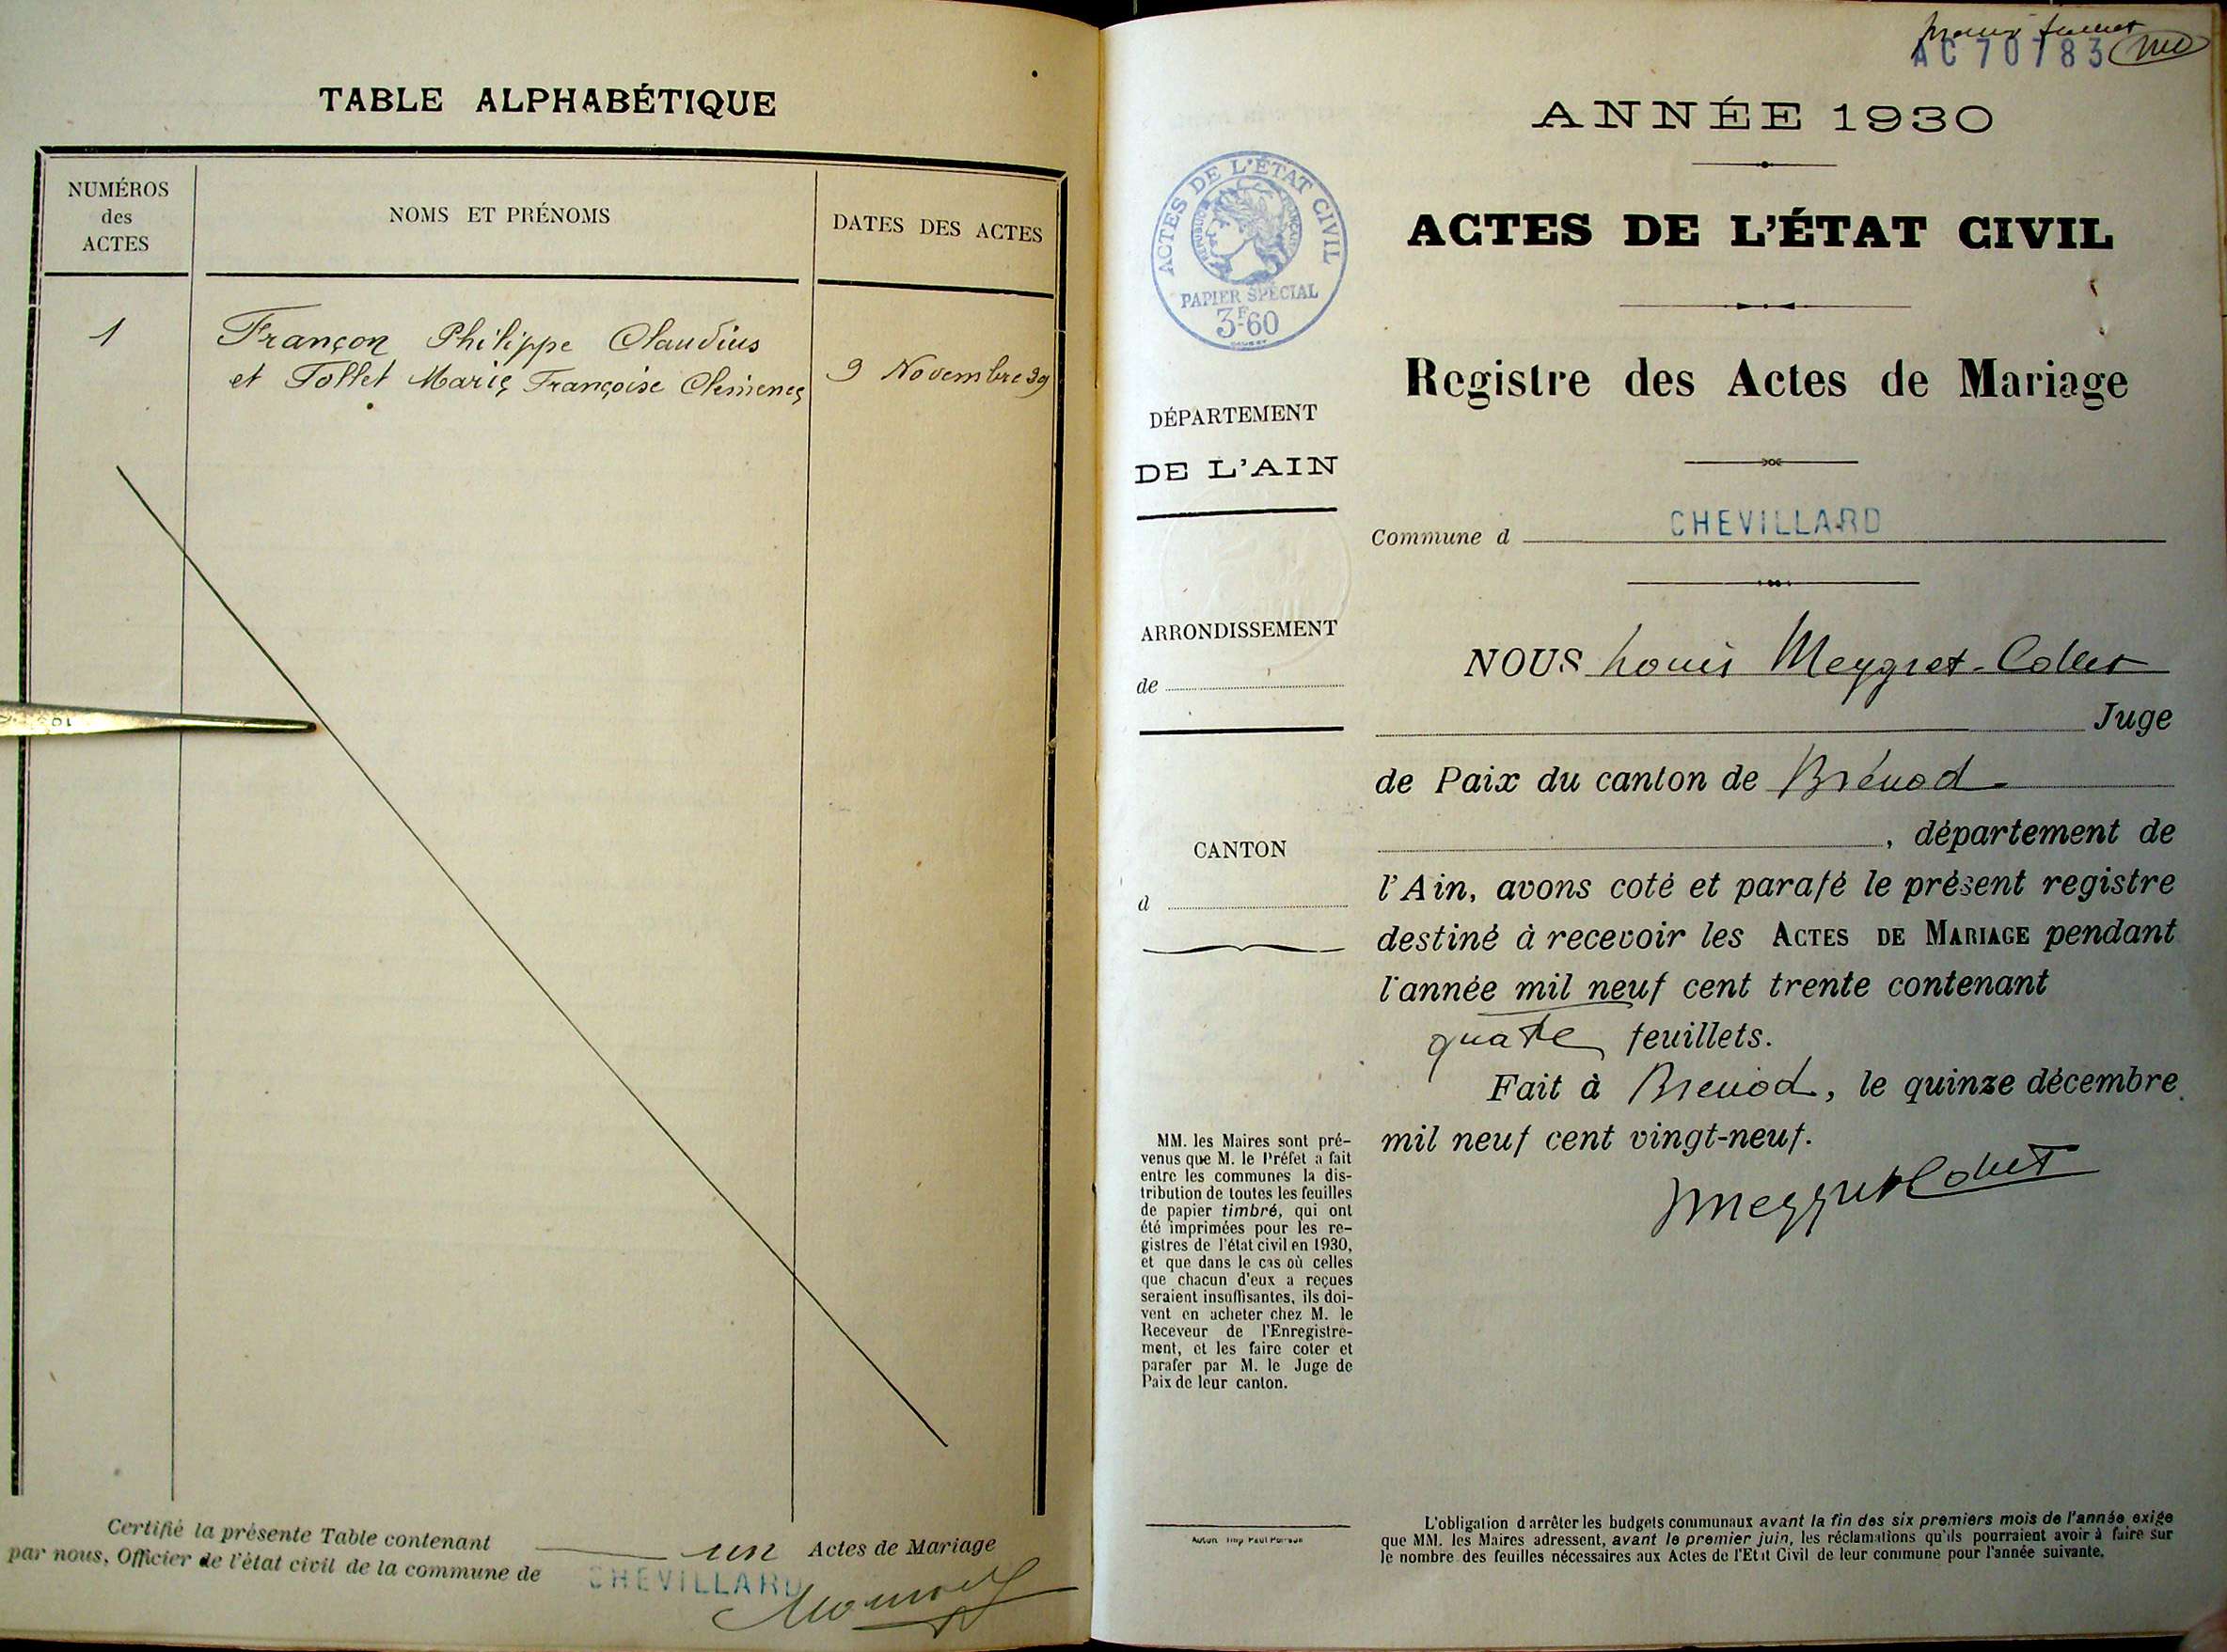 TABLE ALPHABÉTIQUE
NUMÉROS
des
ACTES
NOMS ET PRÉNOMS
DATES DES ACTES
1
Françon Philippe Claudius
et Tollet Marie Françoise Clémence
9 Novembre 29
Certifié la présente Table contenant un Actes de Mariage
par nous, Officier de l'état civil de la commune de CHEVILLARD
premier feuillet
AC 70783
ANNÉE 1930
ACTES DE L'ÉTAT CIVIL
RÉPUBLIQUE FRANÇAISE
PAPIER SPÉCIAL
3F60
ACTES DE L'ÉTAT CIVIL
Registre des Actes de Mariage
DÉPARTEMENT
DE L'AIN
Commune d CHEVILLARD
ARRONDISSEMENT
de
CANTON
d
NOUS Louis Meygret-Collet
Juge
de Paix du canton de Brénod
, département de
l'Ain, avons coté et parafé le présent registre
destiné à recevoir les ACTES DE MARIAGE pendant
l'année mil neuf cent trente contenant
quatre feuillets.
Fait à Brenod, le quinze décembre
mil neuf cent vingt-neuf.
Meygret Collet
MM. les Maires sont pré-
venus que M. le Préfet a fait
entre les communes la dis-
tribution de toutes les feuilles
de papier timbré, qui ont
été imprimées pour les re-
gistres de l'état civil en 1930,
et que dans le cas où celles
que chacun d'eux a reçues
seraient insuffisantes, ils doi-
vent en acheter chez M. le
Receveur de l'Enregistre-
ment, et les faire coter et
parafer par M. le Juge de
Paix de leur canton.
L'obligation d'arrêter les budgets communaux avant la fin des six premiers mois de l'année exige
que MM. les Maires adressent, avant le premier juin, les réclamations qu'ils pourraient avoir à faire sur
le nombre des feuilles nécessaires aux Actes de l'Etat Civil de leur commune pour l'année suivante.